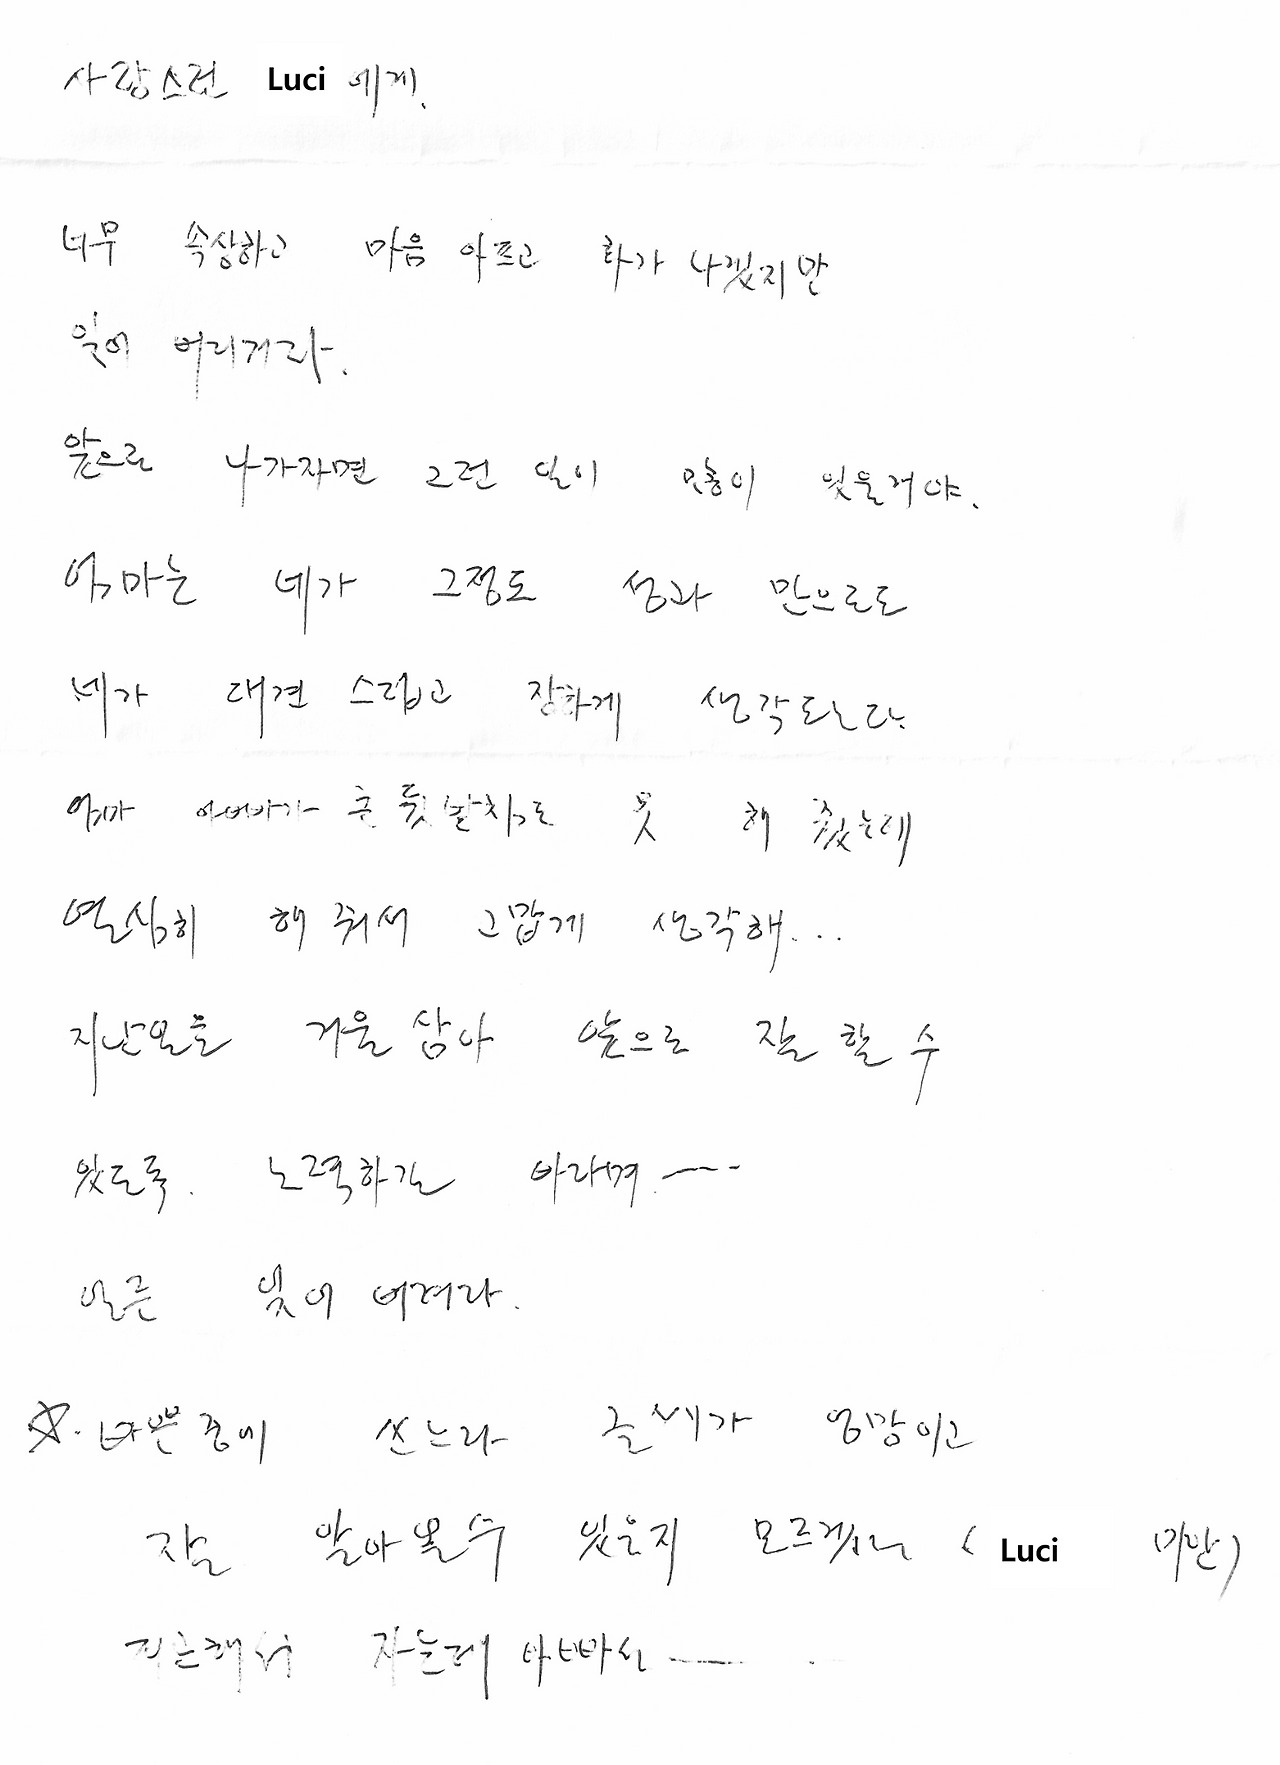 사랑스런 Luci 에게.
너무 속상하고 마음 아프고 화가 나겠지만
잊어 버리거라.
앞으로 나가자면 그런 일이 많이 있을거야.
엄마는 네가 그정도 성과 만으로도
네가 대견 스럽고 장하게 생각되는다.
엄마 아빠가 큰 뒷받침도 못 해 줬는데
열심히 해 줘서 고맙게 생각해...
지난일을 거울 삼아 앞으로 잘 할 수
있도록. 노력하길 바라며.
얼른 잊어 버려라.
☆. 바쁜 중에 쓰느라 글씨가 엉망이고
잘 알아 볼 수 있을지 모르겠네 ( Luci 미안)
퇴근해서 자는데 아빠가